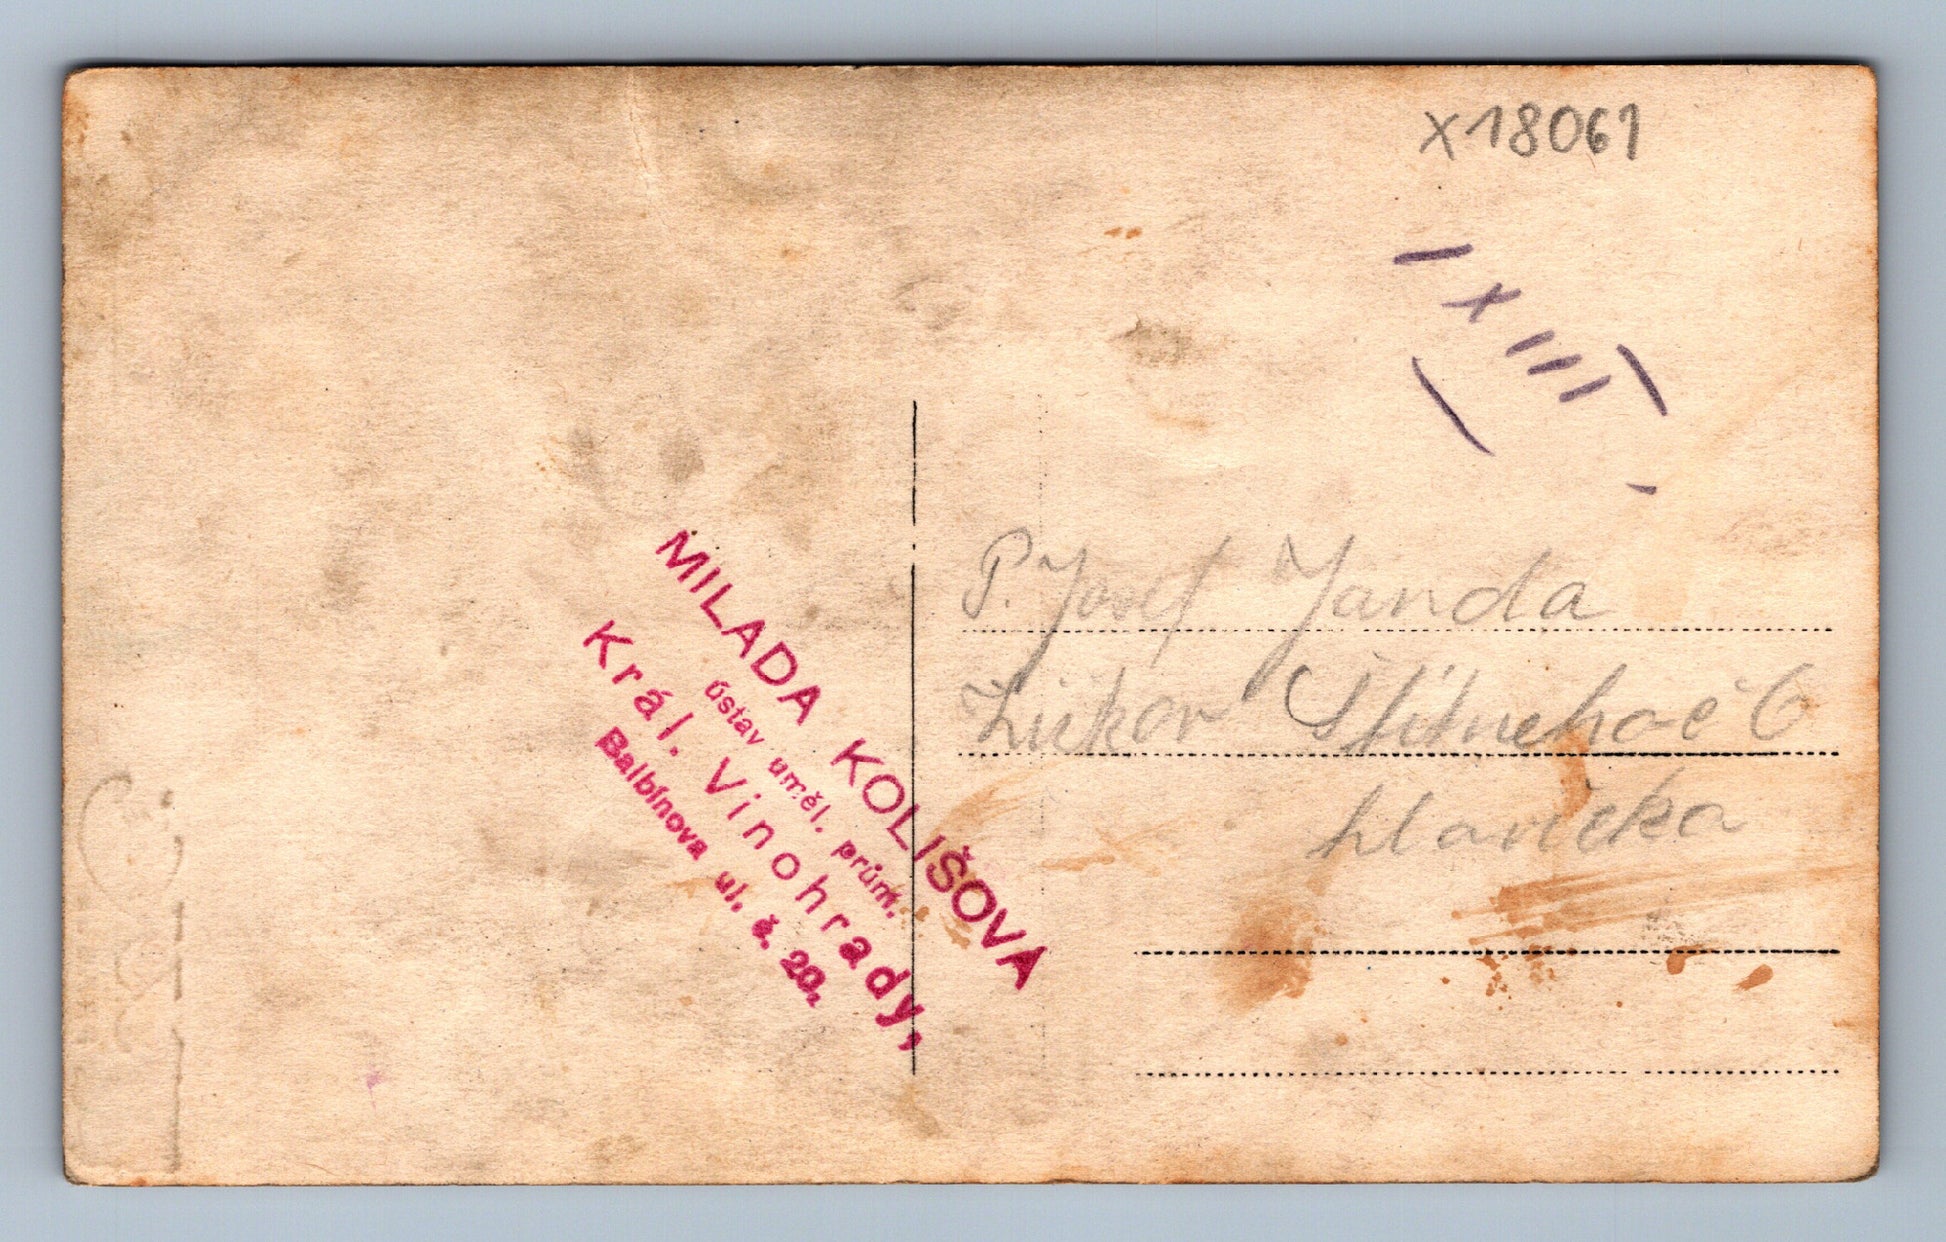 x18061
IXIII
MILADA KOLIŠOVA
ústav uměl. prům.
Král. Vinohrady,
Balbínova ul. č. 20,
P. Josef Janda
Žižkov Štítneho č 6
hlavička